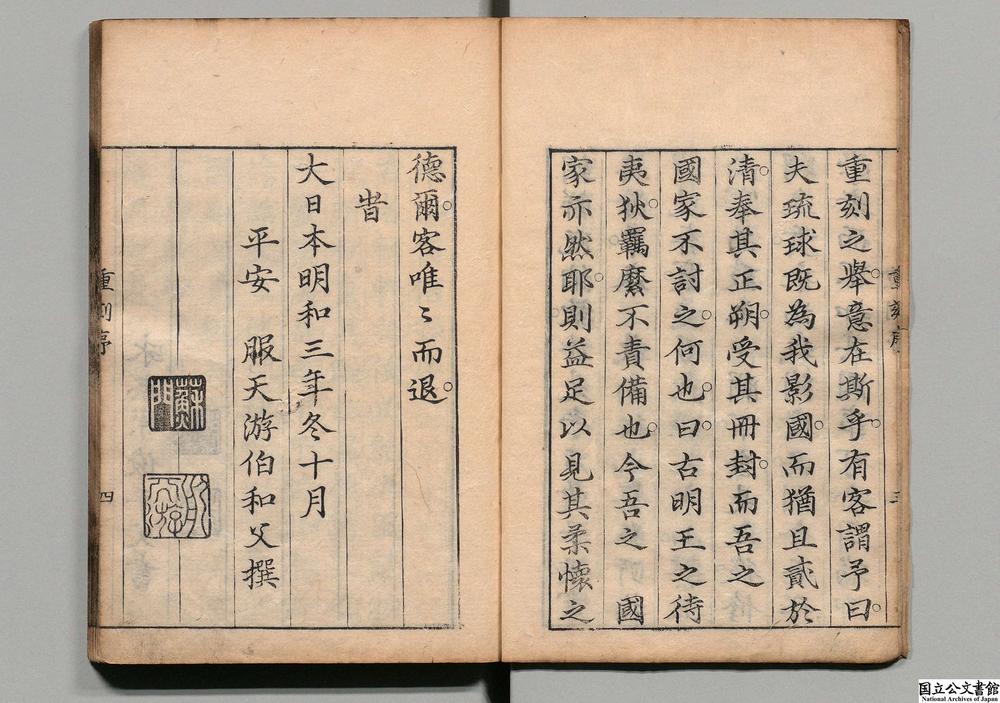 重刻之舉。意在斯乎。有客謂予曰。
夫琉球既為我影國。而猶且貳於
清。奉其正朔。受其冊封。而吾之
國家不討之。何也。曰。古明王之待
夷狄。羈縻不責備也。今吾之國
家亦然耶。則益足以見其柔懷之
重刻序
三
德爾。客唯〻而退。
旹
大日本明和三年冬十月
平安 服天游伯和父撰
蘇門
重刻序
四
国立公文書館
National Archives of Japan